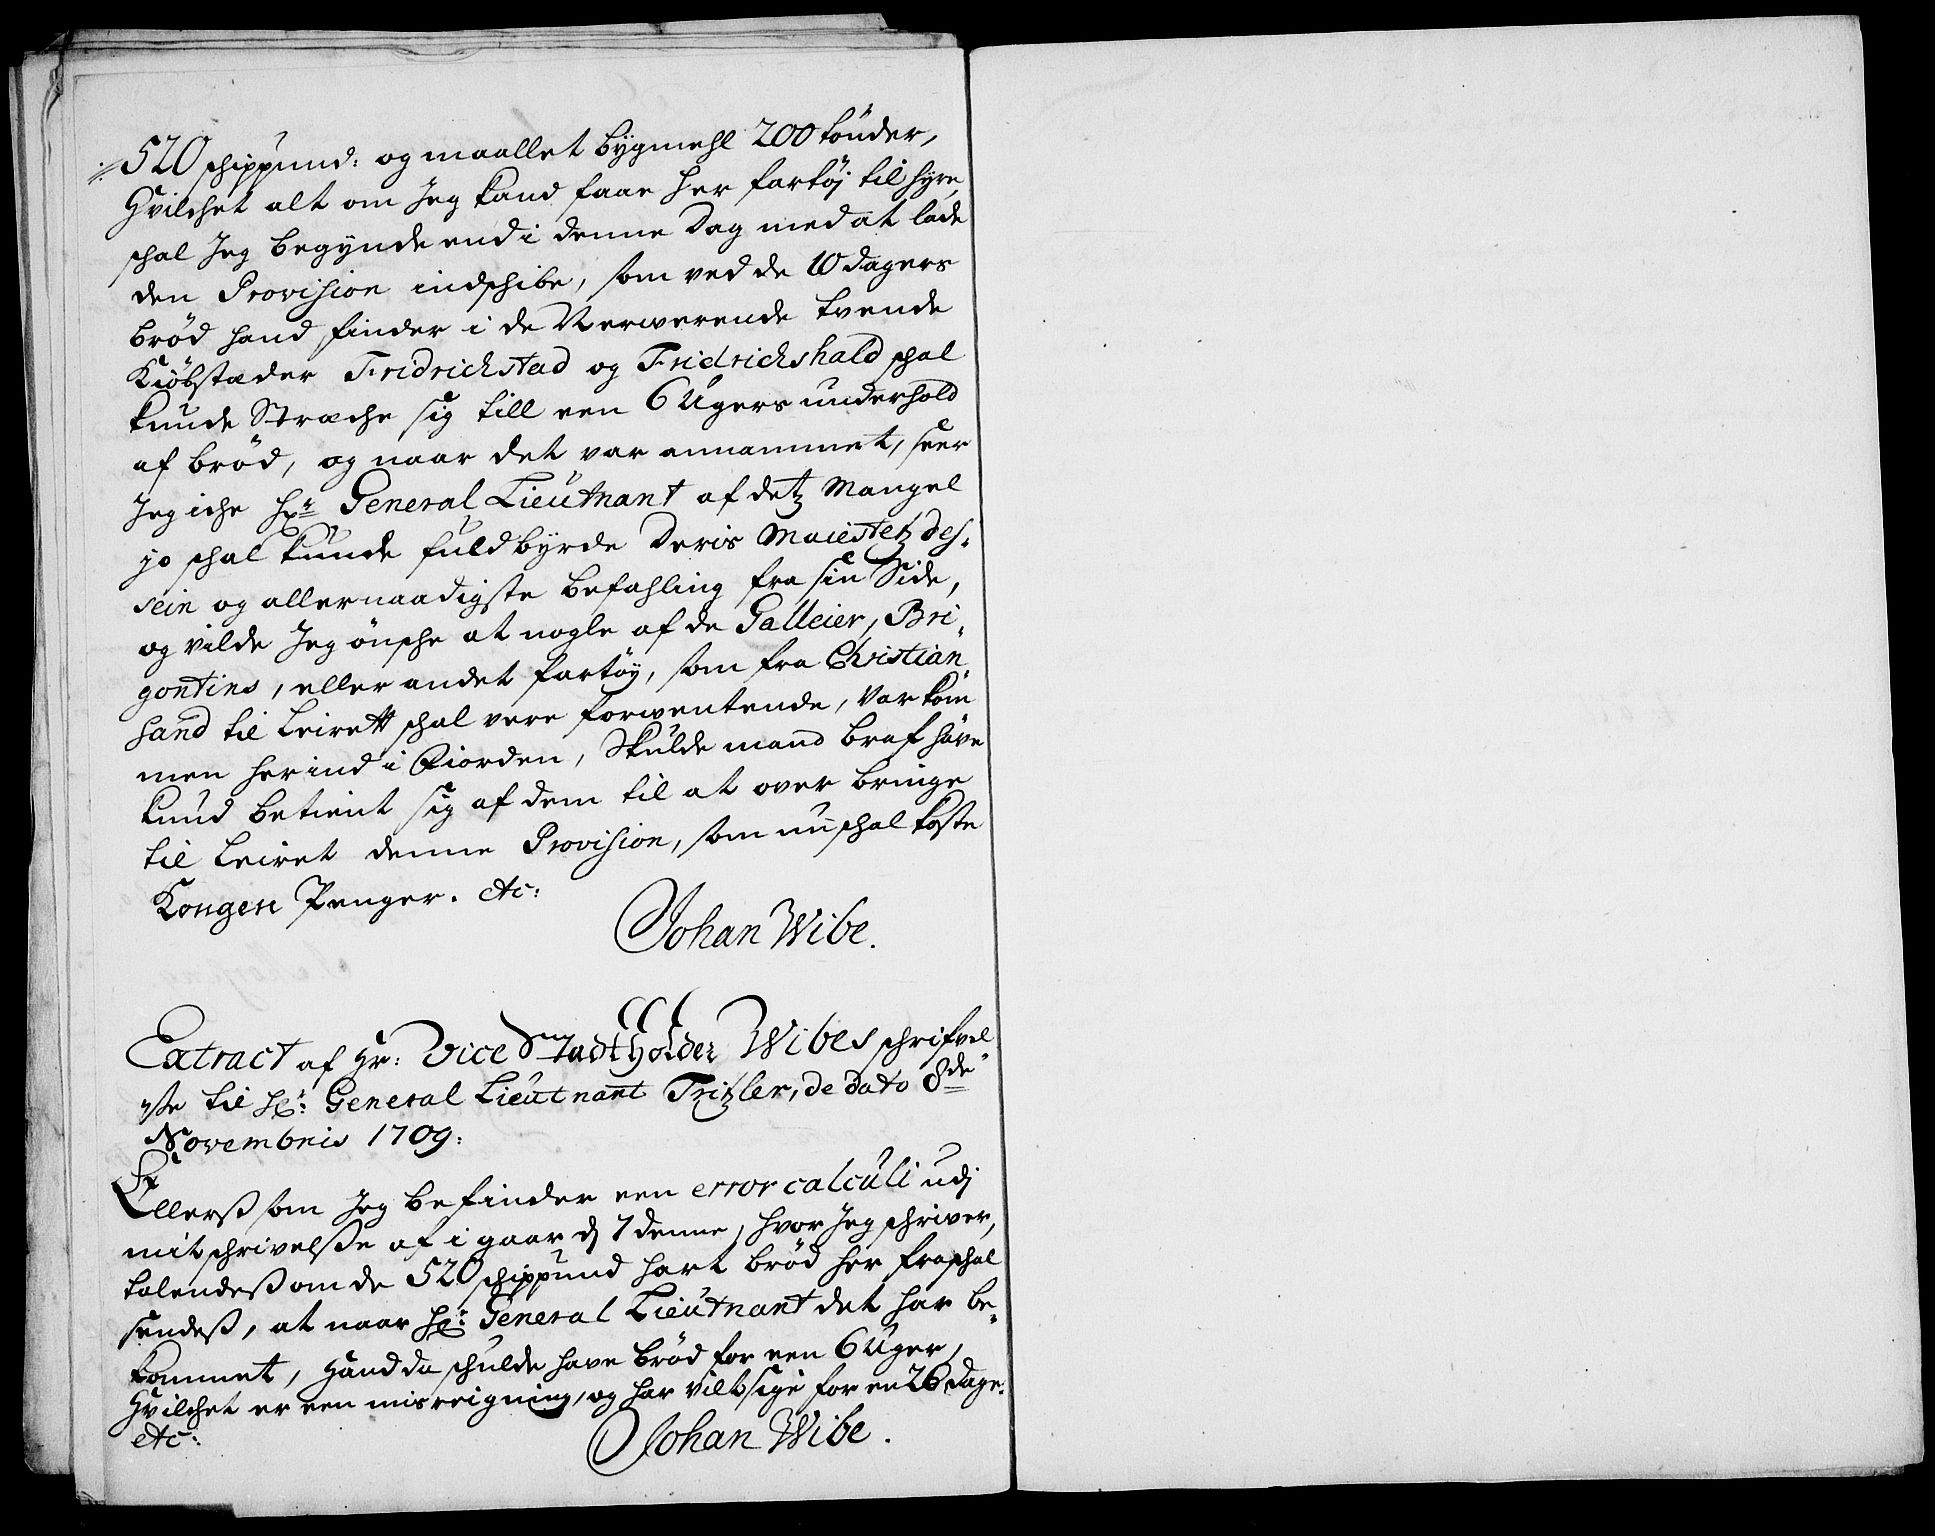 520 schippund: og maallet bygmehl 200 tönder,
Hvilchet alt om Jeg kand faae her fartöj til hyre,
schal Jeg begynde end i denne Dag med at lade
den Provision indschibe, som ved de 10 dagers
bröd hand finder i de Nerwerende tvende
Kiöbstæder Fridrichstad og Fridrichshald schal
kunde Stræche sig till een 6 Ugers underhold
af bröd, og naar det var annammet, seer
Jeg iche Hr. General Lieutnant af detz Mangel
jo schal kunde fuldbyrde Deris Maiestetz des-
sein og allernaadigste befahling fra sin Side,
og vilde Jeg önsche at nogle af de Galleier, Bri-
gontins, eller andet fartöy, som fra Christian
sand til Leirett schal vere forwentende, var kom
men her ind i Fiorden, Skulde mand braf have
kund betient sig af dem til at over bringe
til Leiret denne Provision, som nu schal koste
Kongen Penger. etc:
Johan Wibe.
Extract af Hr: Vice Stadtholder Wibes schrifvel
ße til Hr: General Lieutnant Tritzler, de dato 8de
Novembris 1709:
Ellerß som Jeg befinder een error calculi udj
mit schrivelße af i gaar dj 7 denne, hvor Jeg schriver,
talendeß om de 520 schippund hart bröd her fra schal
sendeß, at naar Hr: General Lieutnant det har be-
kommet, Hand da schulde have bröd for een 6 Uger,
Hvilchet er een misreigning, og har vilt sige for en 26 dage.
etc:
Johan Wibe.